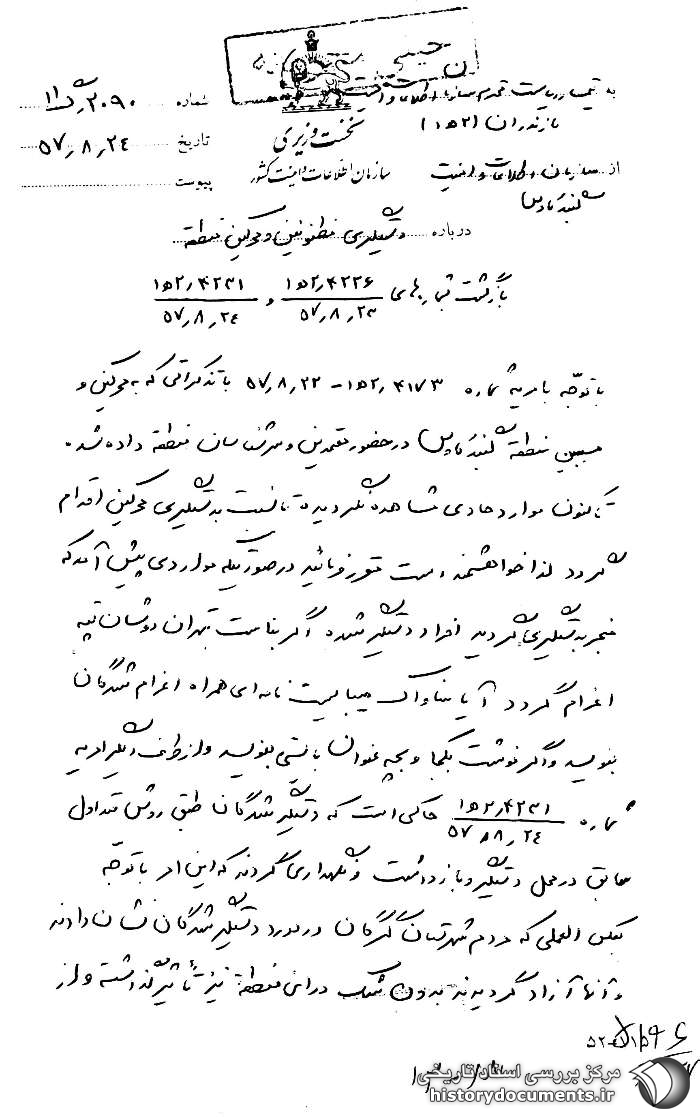 به تیمسار ریاست محترم سازمان اطلاعات و امنیت
مازندران (۱ ه‍ ۲)
از سازمان اطلاعات و امنیت
گنبد کاوس
نخست وزیری
سازمان اطلاعات و امنیت کشور
شماره ۲۰۹۰/ ه‍ ۱۱
تاریخ ۵۷/۸/۲۴
پیوست
درباره دستگیری مظنونین و محرکین منطقه
بازگشت بشماره‌های ۱ه‍۲/۴۲۲۶ و ۱ه‍۲/۴۲۳۱
۵۷/۸/۲۳ ۵۷/۸/۲۴
با توجه بامریه شماره ۱ه‍۲/۴۱۷۳ – ۵۷/۸/۲۲ با تذکراتی که به محرکین و
مسببین منطقه گنبد کاوس در حضور معتمدین و سرشناسان منطقه داده شده
تاکنون موارد حادی مشاهده نگردیده تا نسبت بدستگیری محرکین اقدام
گردد لذا خواهشمند است مقرر فرمائید در صورتیکه مواردی پیش آمد که
منجر بدستگیری گردید افراد دستگیر شده اگر بنا است بتهران دوشان تپه
اعزام گردد آیا ساواک میبایست نامه‌ای همراه اعزام شدگان
بنویسد و اگر نوشت بکجا و بچه عنوان بایستی بنویسد و از طرف دیگر امریه
شماره ۱ه‍۲/۴۲۳۱ حاکی است که دستگیر شدگان طبق روش متداول
۵۷/۸/۲۴
سابق در محل دستگیر و بازداشت و نگهداری گردند که این امر با توجه
بعکس العملی که مردم شهرستان گرگان در مورد دستگیر شدگان نشان دادند
و آنها آزاد گردیدند بدون شک در این منطقه نیز تأثیر گذاشته و از
مرکز بررسی اسناد تاریخی
historydocuments.ir